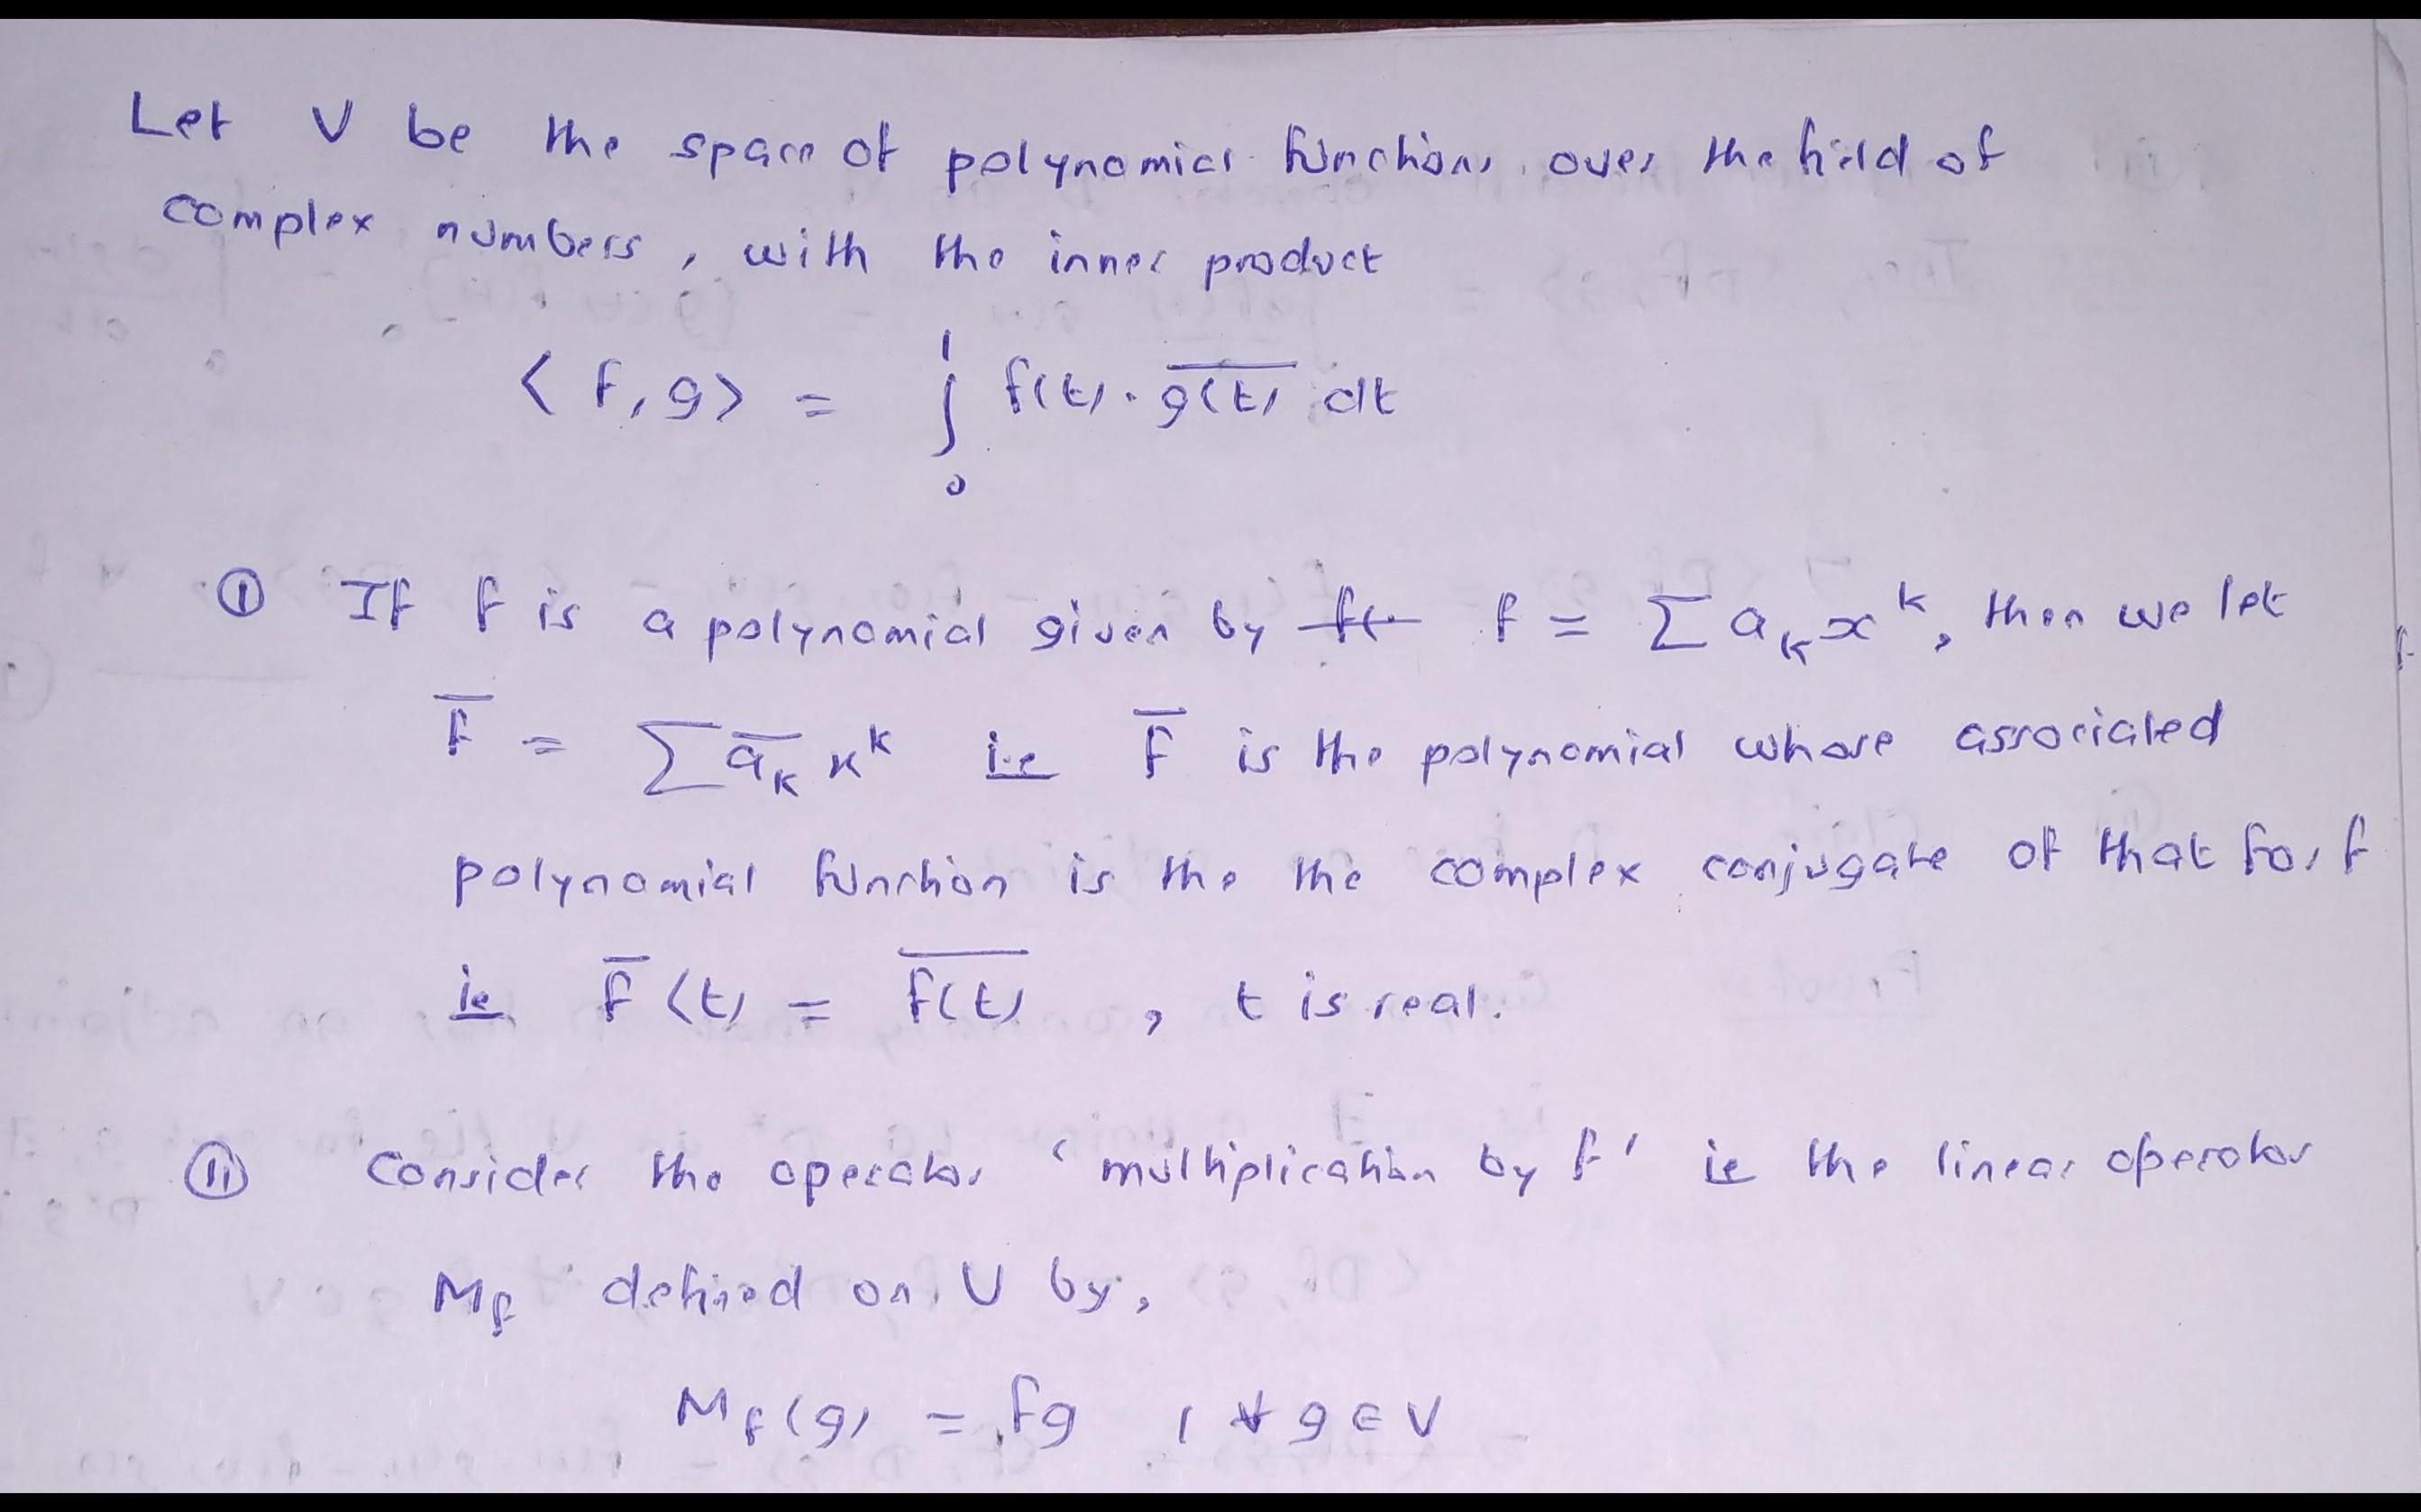 Let V be the space of polynomial functions over the field of
complex numbers, with the inner product
⟨f, g⟩ = ∫₀¹ f(t) · \overline{g(t)} dt
① If f is a polynomial given by ~~f(~~ f = Σ aₖ xᵏ, then we let
\overline{f} = Σ \overline{aₖ} xᵏ i.e \overline{f} is the polynomial whose associated
polynomial function is the the complex conjugate of that for f
ie \overline{f}(t) = \overline{f(t)} , t is real.
ⅱ Consider the operator 'multiplication by f' ie the linear operator
M_f defined on V by,
M_f(g) = fg , ∀ g ∈ V